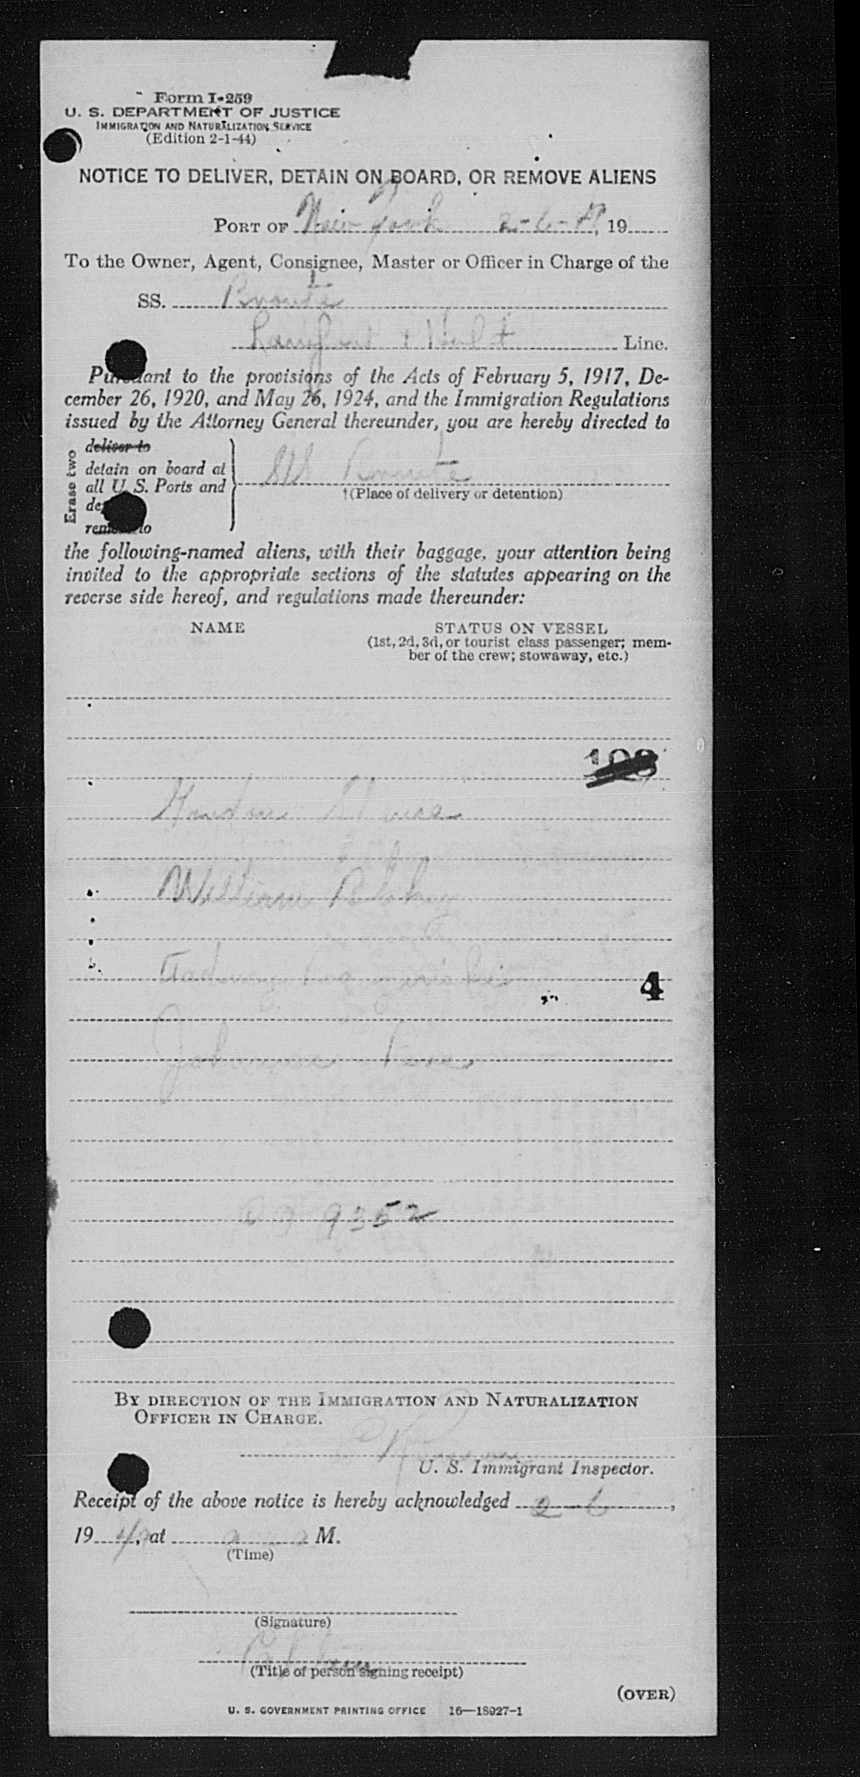 Form I-259
U. S. DEPARTMENT OF JUSTICE
IMMIGRATION AND NATURALIZATION SERVICE
(Edition 2-1-44)
NOTICE TO DELIVER, DETAIN ON BOARD, OR REMOVE ALIENS
PORT OF New York 2-6-, 19
To the Owner, Agent, Consignee, Master or Officer in Charge of the
SS. Bronte
Lamport & Holt Line.
Pursuant to the provisions of the Acts of February 5, 1917, De-
cember 26, 1920, and May 26, 1924, and the Immigration Regulations
issued by the Attorney General thereunder, you are hereby directed to
Erase two
deliver to
detain on board at
all U. S. Ports and
SS Bronte
†(Place of delivery or detention)
remove to
the following-named aliens, with their baggage, your attention being
invited to the appropriate sections of the statutes appearing on the
reverse side hereof, and regulations made thereunder:
NAME
STATUS ON VESSEL
(1st, 2d, 3d, or tourist class passenger; mem-
ber of the crew; stowaway, etc.)
108
William
4
Johannes
9352
BY DIRECTION OF THE IMMIGRATION AND NATURALIZATION
OFFICER IN CHARGE.
U. S. Immigrant Inspector.
Receipt of the above notice is hereby acknowledged 2-6,
19, at M.
(Time)
(Signature)
(Title of person signing receipt)
(OVER)
U. S. GOVERNMENT PRINTING OFFICE 16—18927-1